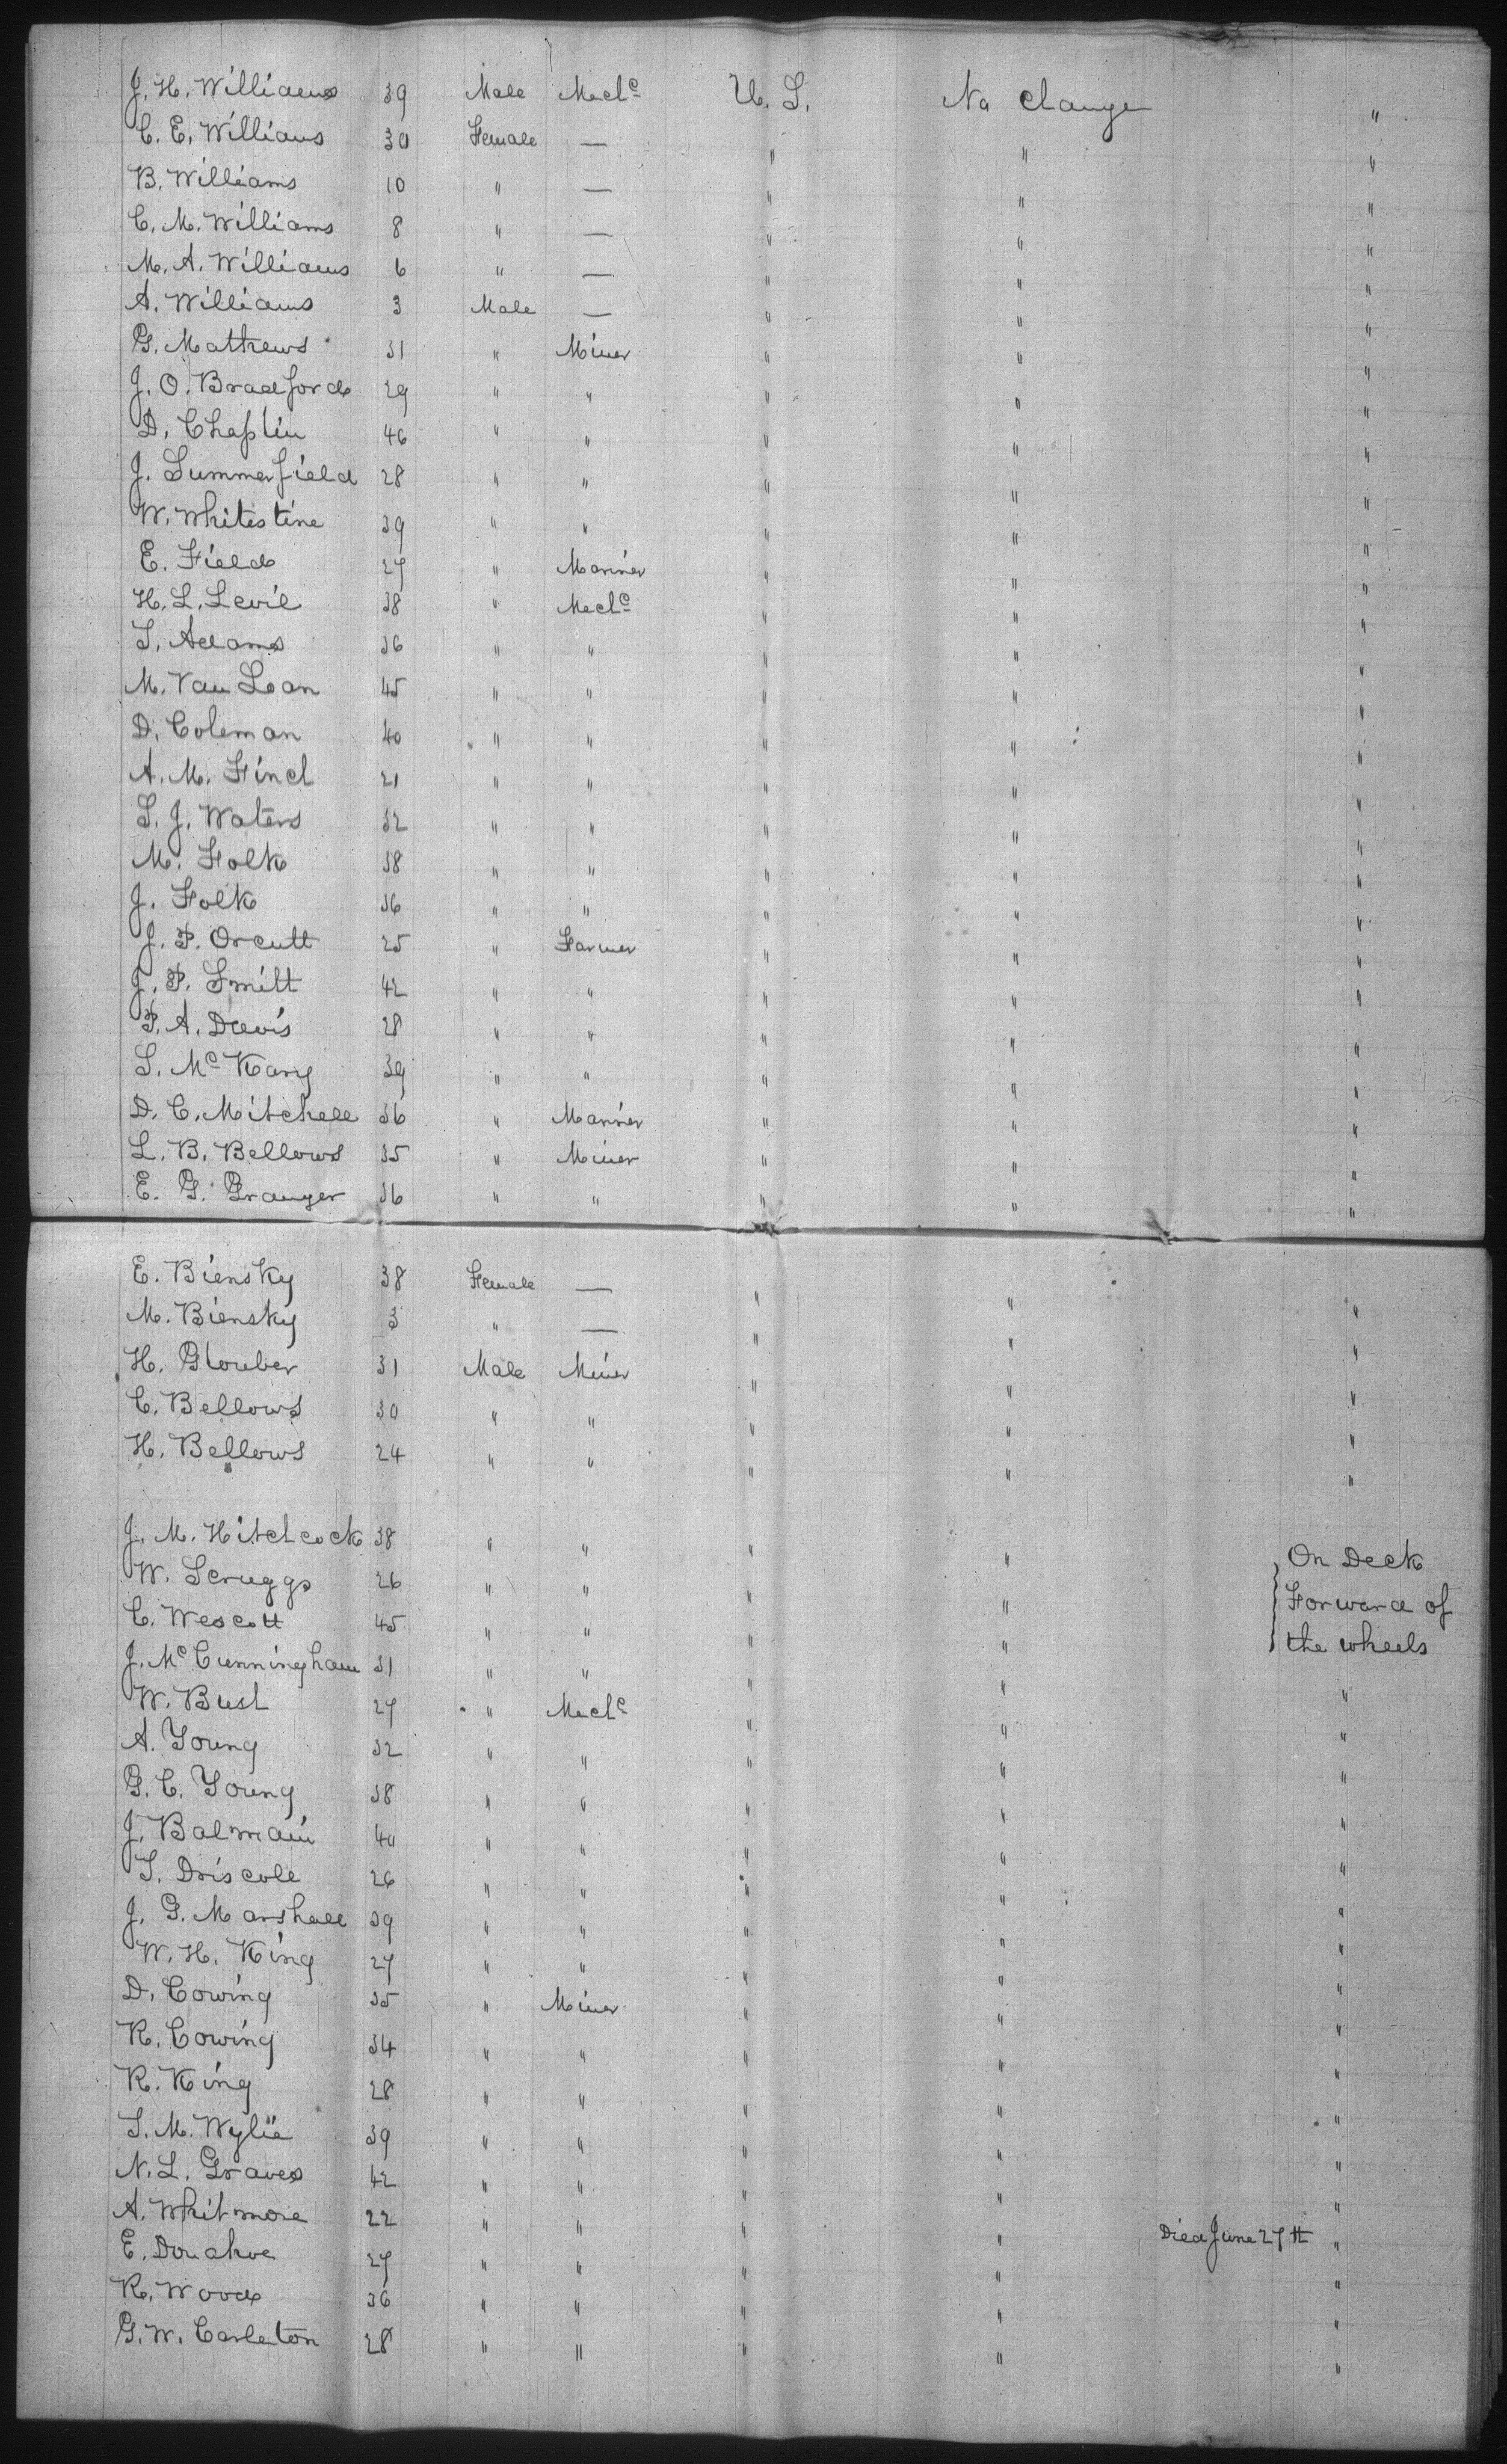 J. H. Williams 39 Male Mech<sup>c</sup> U. S. No Change "
C. E. Williams 30 Female — " " "
B. Williams 10 " — " " "
C. M. Williams 8 " — " " "
M. A. Williams 6 " — " " "
A. Williams 3 Male — " " "
G. Mathews 31 " Miner " " "
J. O. Bradford 29 " " " " "
D. Chaplin 46 " " " " "
J. Summerfield 28 " " " " "
W. Whitestine 39 " " " " "
E. Field 27 " Mariner " " "
H. L. Levil 38 " Mech<sup>c</sup> " " "
S. Adams 36 " " " " "
M. Van Loan 45 " " " " "
D. Coleman 40 " " " " "
A. M. Finch 21 " " " " "
S. J. Waters 32 " " " " "
M. Folk 38 " " " " "
J. Folk 36 " " " " "
J. P. Orcutt 25 " Farmer " " "
J. P. Smith 42 " " " " "
P. A. Davis 28 " " " " "
S. McKany 39 " " " " "
D. C. Mitchell 36 " Mariner " " "
L. B. Bellows 35 " Miner " " "
E. G. Granger 36 " " " " "
E. Biensky 38 Female — " " "
M. Biensky 3 " — " " "
H. Glouber 31 Male Miner " " "
C. Bellows 30 " " " " "
H. Bellows 24 " " " " "
J. M. Hitchcock 38 " " " " On Deck
W. Scruggs 26 " " " " Forward of
C. Wescott 45 " " " " the wheels
J. McCunningham 31 " " " " "
W. Bush 27 " Mech<sup>c</sup> " " "
A. Young 32 " " " " "
G. C. Young 38 " " " " "
J. Balmain 40 " " " " "
T. Driscole 26 " " " " "
J. G. Marshall 39 " " " " "
W. H. King 27 " " " " "
D. Cowing 35 " Miner " " "
R. Cowing 34 " " " " "
R. King 28 " " " " "
S. M. Wylie 39 " " " " "
N. L. Graves 42 " " " " "
A. Whitmore 22 " " " " Died June 27th "
E. Donahoe 27 " " " " "
R. Wood 36 " " " " "
G. W. Carleton 28 " " " " "